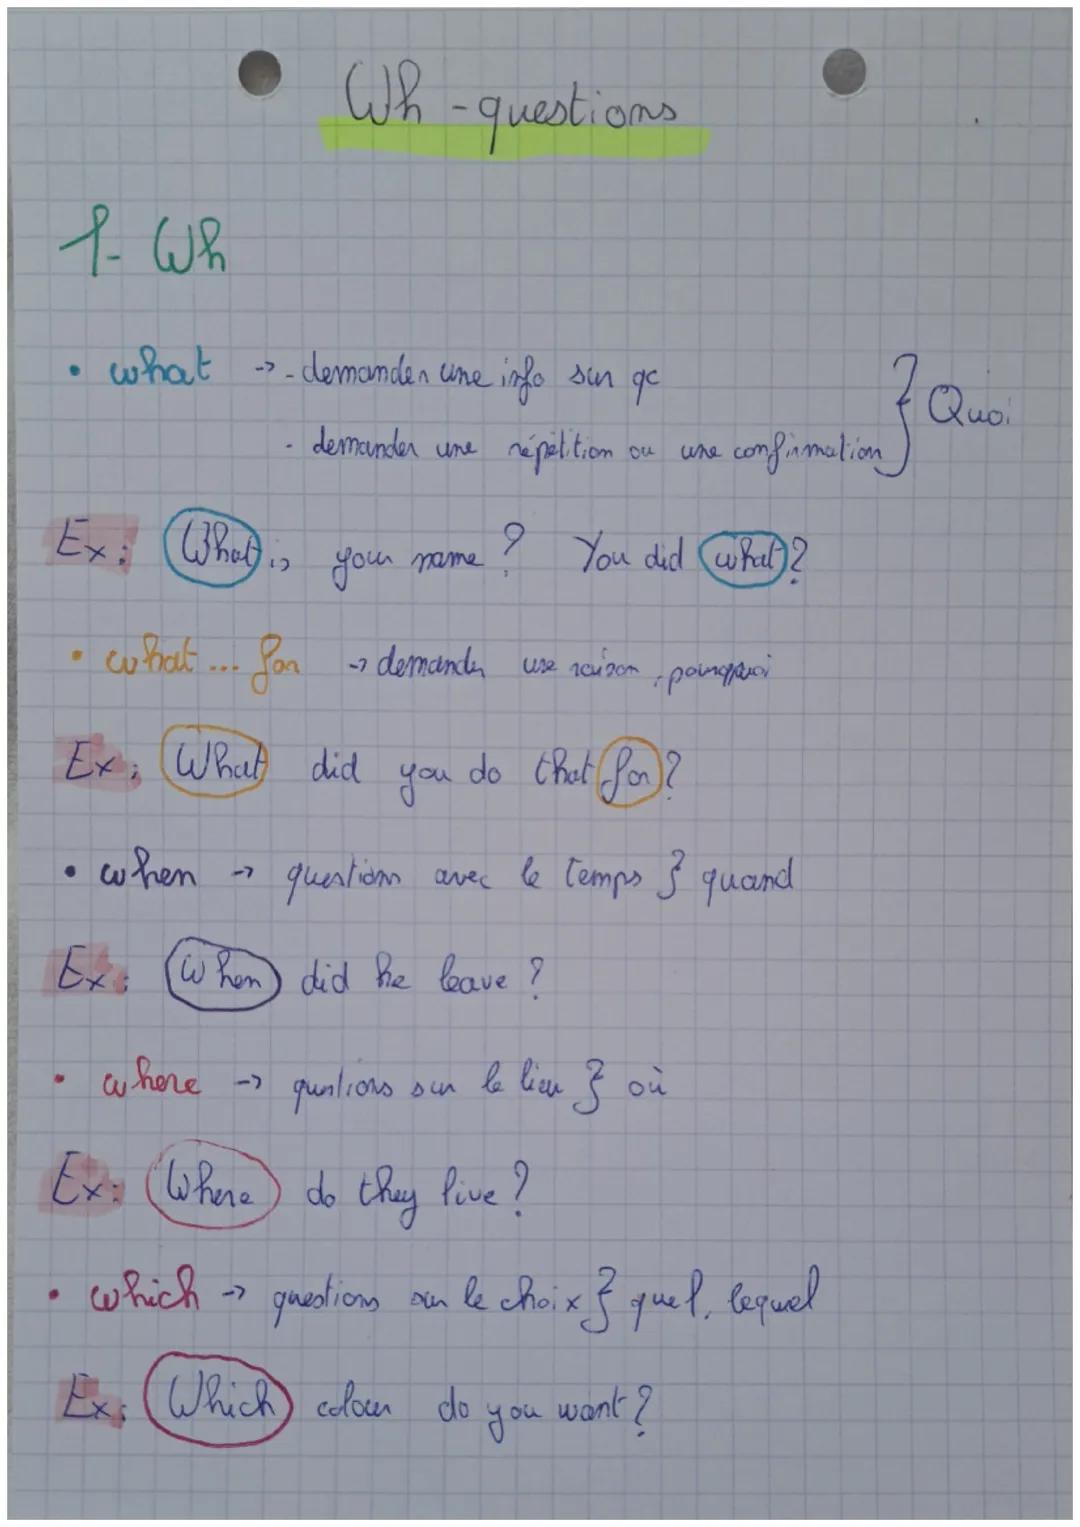 Wh-questions
1- Wh
• what -> - demander une info sur qc
- demander une répétition ou une confirmation } Quoi
Ex: What is your name? You did what?
• what... for -> demander une raison, pourquoi
Ex: What did you do that for?
• when -> questions avec le temps } quand
Ex: When did he leave?
• where -> questions sur le lieu } où
Ex: Where do they live?
• which -> questions sur le choix } quel, lequel
Ex: Which colour do you want?